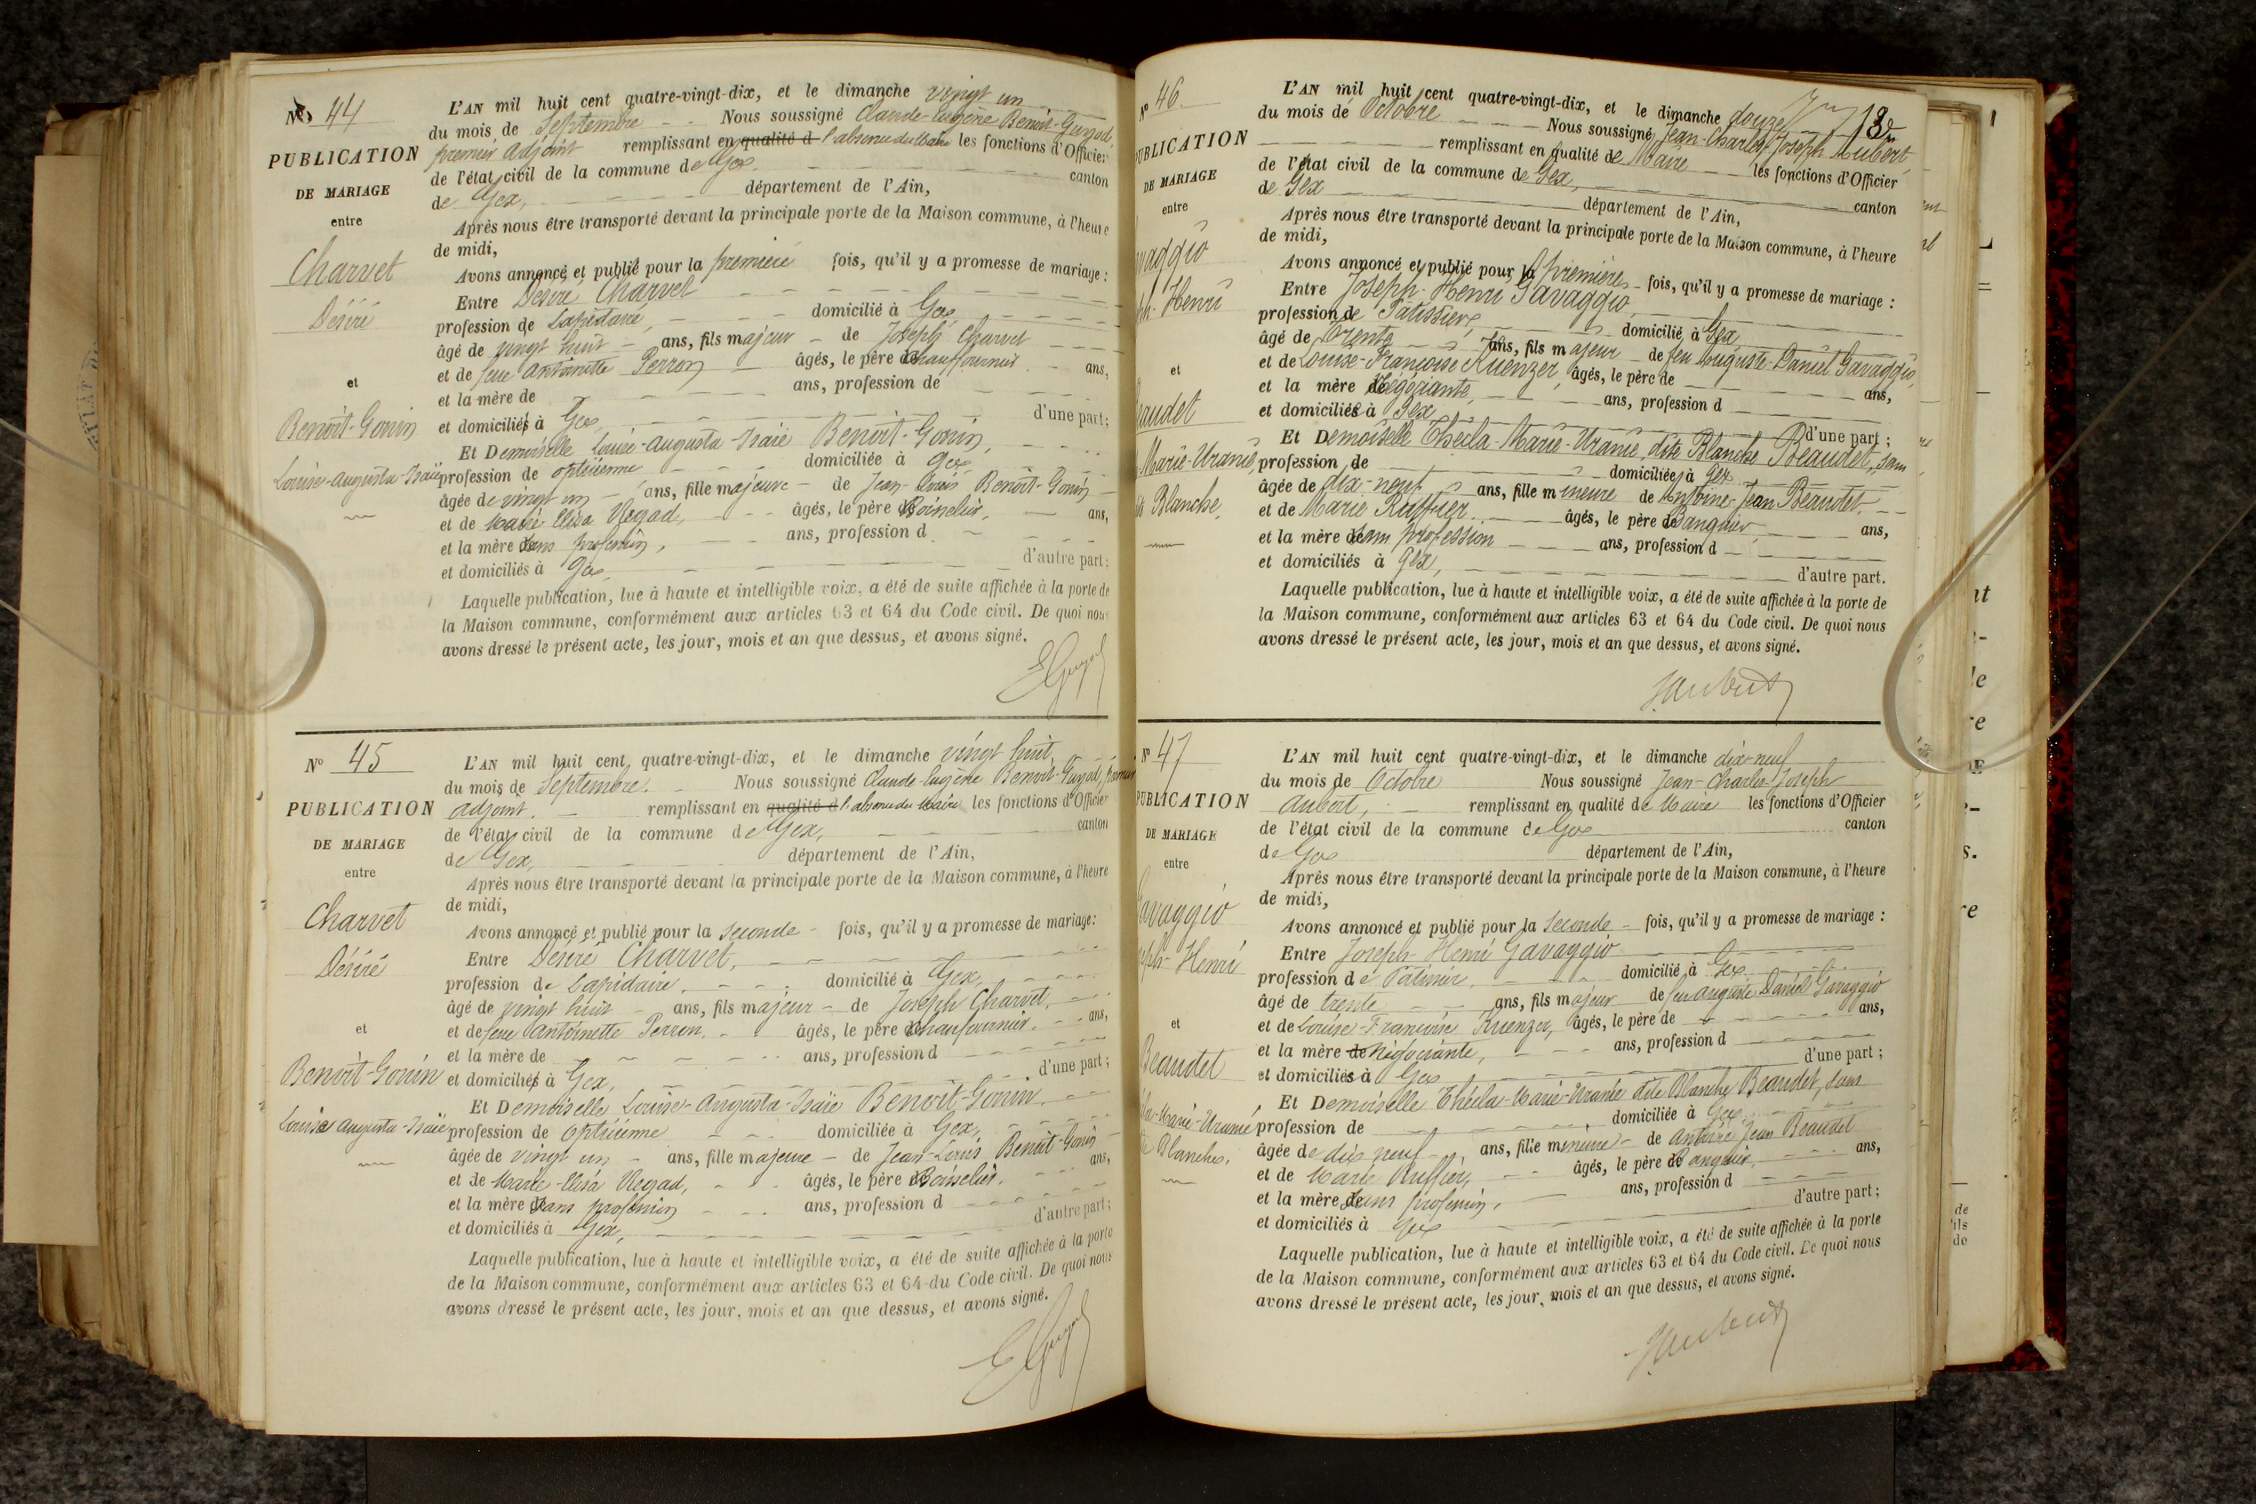 No 44
PUBLICATION
DE MARIAGE
entre
Charvet
Désiré
et
Benoit-Gonin
Louise-Augusta-Isaïe
L'AN mil huit cent quatre-vingt-dix, et le dimanche vingt un
du mois de Septembre Nous soussigné Claude-Eugène Benoit-Guyod,
premier adjoint remplissant en qualité d l'absence du Maire les fonctions d'Officier
de l'état civil de la commune de Gex canton
de Gex, département de l'Ain,
Après nous être transporté devant la principale porte de la Maison commune, à l'heure
de midi,
Avons annoncé et publié pour la première fois, qu'il y a promesse de mariage :
Entre Désiré Charvet
profession de Lapidaire, domicilié à Gex,
âgé de vingt huit ans, fils majeur de Joseph Charvet
et de feue Antoinette Perron âgés, le père chauffournier ans,
et la mère de ans, profession de
et domiciliés à Gex, d'une part ;
Et Demoiselle Louise-Augusta-Isaïe Benoit-Gonin,
profession de optiienne domiciliée à Gex
âgée de vingt un ans, fille majeure de Jean-Louis Benoit-Gonin
et de Marie Elisa Regad, âgés, le père Boisselier, ans,
et la mère sans profession, ans, profession d
et domiciliés à Gex d'autre part ;
Laquelle publication, lue à haute et intelligible voix, a été de suite affichée à la porte de
la Maison commune, conformément aux articles 63 et 64 du Code civil. De quoi nous
avons dressé le présent acte, les jour, mois et an que dessus, et avons signé.
EGuyod
No 45
PUBLICATION
DE MARIAGE
entre
Charvet
Désiré
et
Benoit-Gonin
Louise Augusta-Isaïe
L'AN mil huit cent quatre-vingt-dix, et le dimanche vingt huit
du mois de Septembre. Nous soussigné Claude-Eugène Benoit-Guyod, premier
adjoint. remplissant en qualité d l'absence du Maire les fonctions d'Officier
de l'état civil de la commune de Gex, canton
de Gex, département de l'Ain,
Après nous être transporté devant la principale porte de la Maison commune, à l'heure
de midi,
Avons annoncé et publié pour la seconde fois, qu'il y a promesse de mariage:
Entre Désiré Charvet,
profession de Lapidaire, domicilié à Gex,
âgé de vingt huit ans, fils majeur de Joseph Charvet,
et de feue Antoinette Perron. âgés, le père chaufournier. ans,
et la mère de ans, profession d
et domiciliés à Gex, d'une part ;
Et Demoiselle Louise-Augusta-Isaïe Benoit-Gonin
profession de optiienne domiciliée à Gex,
âgée de vingt un ans, fille majeure de Jean-Louis Benoit-Gonin
et de Marie-Elisa Regad, âgés, le père Boisselier. ans,
et la mère sans profession ans, profession d
et domiciliés à Gex, d'autre part ;
Laquelle publication, lue à haute et intelligible voix, a été de suite affichée à la porte
de la Maison commune, conformément aux articles 63 et 64 du Code civil. De quoi nous
avons dressé le présent acte, les jour, mois et an que dessus, et avons signé.
EGuyod
No 46
PUBLICATION
DE MARIAGE
entre
Henri
et
Beaudet
Marie-Uranie,
Blanche.
L'AN mil huit cent quatre-vingt-dix, et le dimanche douze
du mois de Octobre Nous soussigné Jean-Charles-Joseph Aubert,
remplissant en qualité de Maire les fonctions d'Officier
de l'état civil de la commune de Gex, canton
de Gex département de l'Ain,
Après nous être transporté devant la principale porte de la Maison commune, à l'heure
de midi,
Avons annoncé et publié pour la première fois, qu'il y a promesse de mariage :
Entre Joseph-Henri Gavaggio,
profession de Patissier, domicilié à Gex
âgé de trente ans, fils majeur de feu Auguste-Daniel Gavaggio,
et de Louise-Françoise Kuenzer, âgés, le père de ans,
et la mère Négociante, ans, profession d
et domiciliés à Gex d'une part ;
Et Demoiselle Thécla-Marie-Uranie, dite Blanche Beaudet, sans
profession de domiciliée à Gex
âgée de dix-neuf ans, fille mineure de Antoine-Jean Beaudet,
et de Marie Ruffier, âgés, le père Banquier, ans,
et la mère sans profession ans, profession d
et domiciliés à Gex, d'autre part.
Laquelle publication, lue à haute et intelligible voix, a été de suite affichée à la porte de
la Maison commune, conformément aux articles 63 et 64 du Code civil. De quoi nous
avons dressé le présent acte, les jour, mois et an que dessus, et avons signé.
J. Aubert
No 47
PUBLICATION
DE MARIAGE
entre
Gavaggio
Henri
et
Beaudet
Marie-Uranie
Blanche.
L'AN mil huit cent quatre-vingt-dix, et le dimanche dix-neuf
du mois de Octobre Nous soussigné Jean-Charles-Joseph
Aubert, remplissant en qualité de Maire les fonctions d'Officier
de l'état civil de la commune de Gex canton
de Gex département de l'Ain,
Après nous être transporté devant la principale porte de la Maison commune, à l'heure
de midi,
Avons annoncé et publié pour la seconde fois, qu'il y a promesse de mariage :
Entre Joseph-Henri Gavaggio
profession de Patissier. domicilié à Gex
âgé de trente ans, fils majeur de feu Auguste Daniel Gavaggio
et de Louise-Françoise Kuenzer, âgés, le père de ans,
et la mère de Négociante, ans, profession d
et domiciliés à Gex d'une part ;
Et Demoiselle Thécla-Marie-Uranie dite Blanche Beaudet, sans
profession de domiciliée à Gex
âgée de dix neuf ans, fille mineure de Antoine Jean Beaudet
et de Marie Ruffier, âgés, le père Banquier, ans,
et la mère sans profession, ans, profession d
et domiciliés à Gex d'autre part ;
Laquelle publication, lue à haute et intelligible voix, a été de suite affichée à la porte
de la Maison commune, conformément aux articles 63 et 64 du Code civil. De quoi nous
avons dressé le présent acte, les jour, mois et an que dessus, et avons signé.
J. Aubert